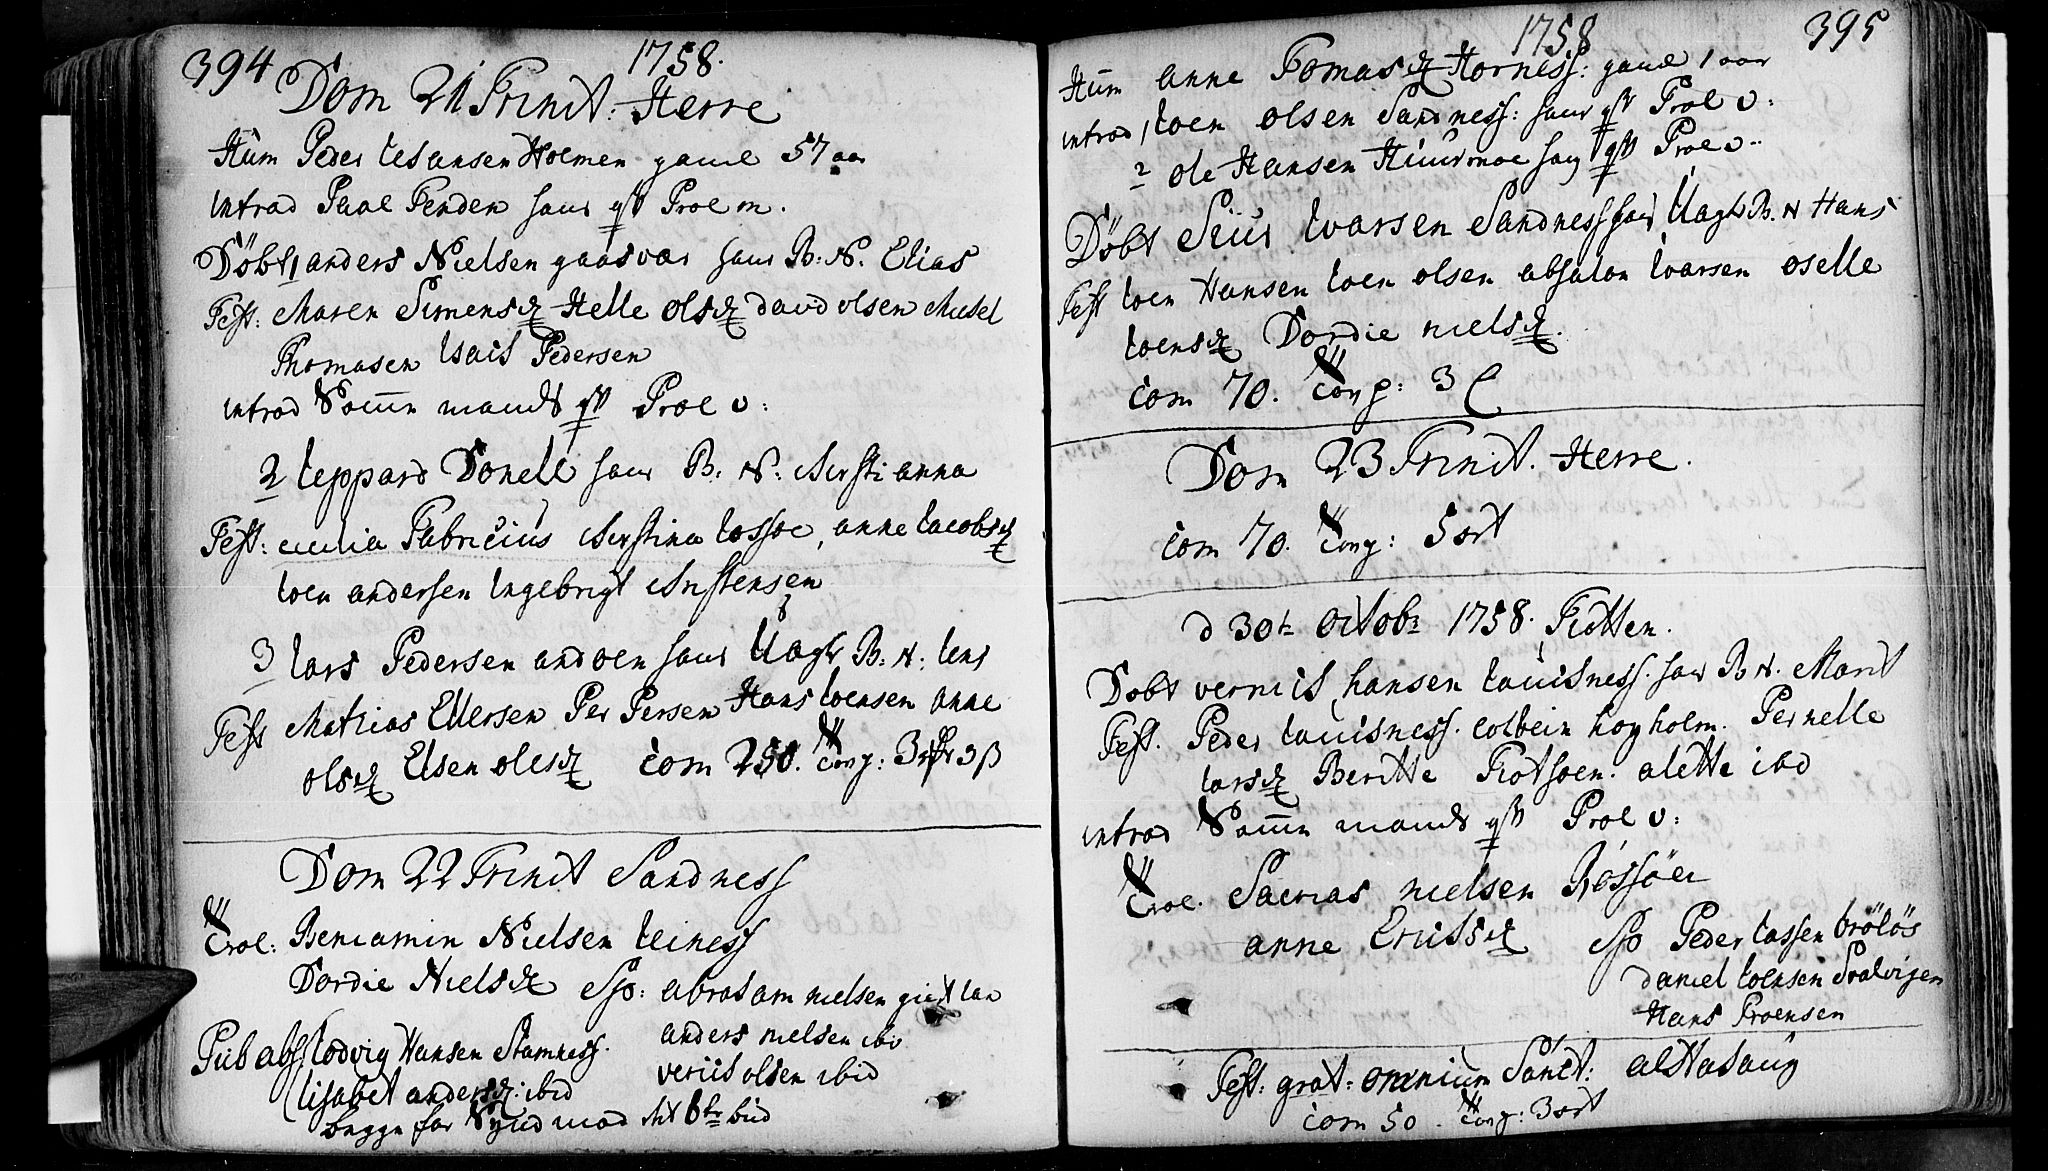 394
1758.
Dom 21 Trinit: Herrø
Hum Peder Iesansen Holmen gaml 57 aar
introd Paal Fenden haud qß Prol m.
Døbt 1 anders Nielsen gaasvær haud B: N. Elias
Test: Maren Simensd Helle olsd david olsen Mikel
Thomasen Isais Pedersen
introd Somn mands qß Prol v:
2 leppard Donell haud B: N: Kirstianna
Test: cicilia Fabricius Kirstina Lossoe, anne Iacobsd
Ioen andersen Ingebrigt Kristensen
3 Lars Pedersen andoen haud Uagt B: N: Iens
Test Mathias Ellersen Per Persen Hans Ioensen anne
olsd Elsen olesd Com 250. Cong: 3 ß
Dom 22 Trinit Sandness
Trol: Beniamin Nielsen Leiness
Dordie Nielsd Sp: abraham nielsen
anders nielsen ibid
veriis olsen ibid
Pub abs Lodvig Hansen Stamness.
Lisabet andersd: ibid
begge for mod det 6te bud
1758
395
Hum anne Tomasd Horness: gaml 1 aar
introd 1 Ioen olsen Sandness: haud qß Prol v:
2 ole Hansen qß Prol v:
Døbt Siur Ivarsen Sandness haud Uagt B: N Hans
Test Ioen Hansen Ioen olsen absalon Ivarsen oselle
Ioensd Dordie nielsd.
Com 70. Cong: 3
Dom 23 Trinit. Herrø.
Com 70. Cong: 5 ort
d 30te octobr 1758. Tiøtten.
Døbt verniis hansen Lavisness. haud B N. Marit
Test. Peder Lavisness. colbein høyholm. Pernelle
Larsd Beritte Tiotsoen. alette ibid
introd Somn mands qß Prol v:
Trol. Sacrias nielsen Røssøen
anne Ericsd Sp Peder Lassen brøløs
Daniel Ioensen Svalvigen
Hans Troensen
Fest: grat: omnium Sanct: alstahaug
Com 50. Cong: 3 ort